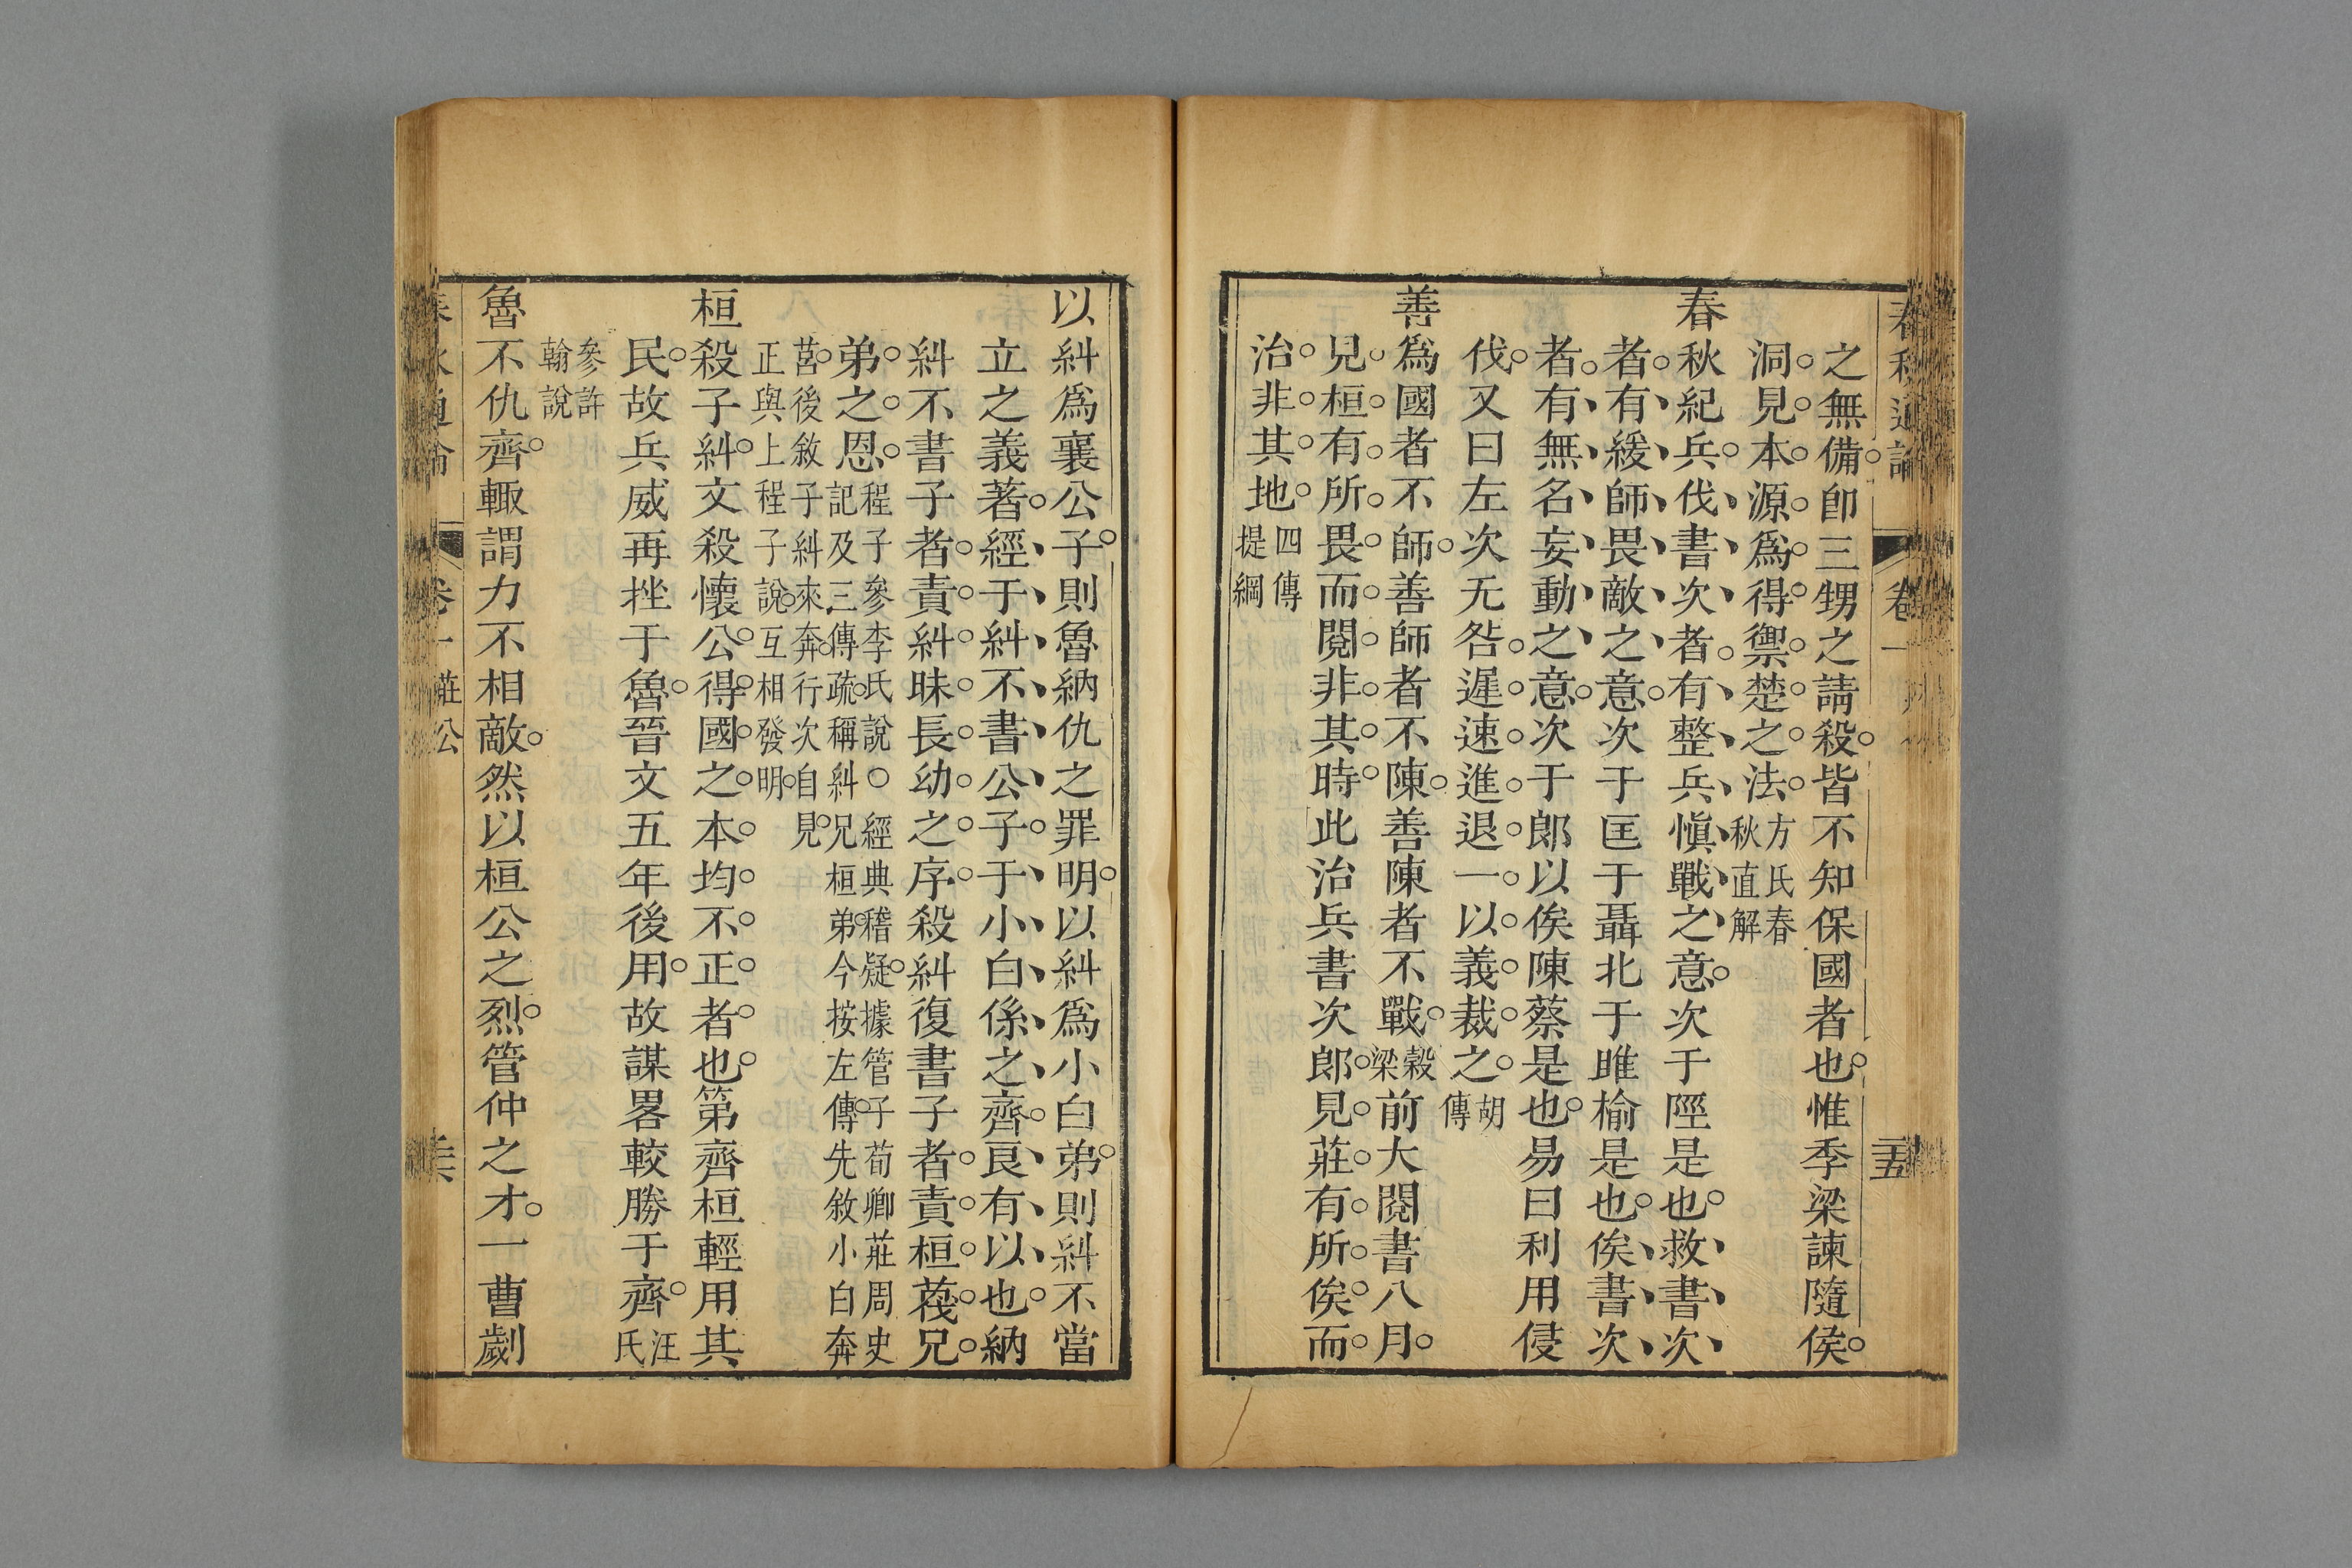 之無備卽三甥之請殺皆不知保國者也惟季梁諫隨侯
洞見本源爲得禦楚之法方氏春秋直解
春秋紀兵伐書次者有整兵愼戰之意次于陘是也救書次
者有緩師畏敵之意次于匡于聶北于雎榆是也俟書次
者有無名妄動之意次于郞以俟陳蔡是也易曰利用侵
伐又曰左次无咎遲速進退一以義裁之胡傳
善爲國者不師善師者不陳善陳者不戰穀梁前大閱書八月
見桓有所畏而閱非其時此治兵書次郞見莊有所俟而
治非其地四傳提綱
春秋通論
卷一
五
以糾爲襄公子則魯納仇之罪明以糾爲小白弟則糾不當
立之義著經于糾不書公子于小白係之齊良有以也納
糾不書子者責糾昧長幼之序殺糾復書子者責桓蔑兄
弟之恩程子參李氏說○經典稽疑據管子荀卿莊周史
記及三傳疏稱糾兄桓弟今按左傳先敘小白奔
莒後敘子糾來奔行次自見
正與上程子說互相發明
桓殺子糾文殺懷公得國之本均不正者也第齊桓輕用其
民故兵威再挫于魯晉文五年後用故謀畧較勝于齊汪氏
參許翰說
魯不仇齊輒謂力不相敵然以桓公之烈管仲之才一曹劌
卷一 莊公